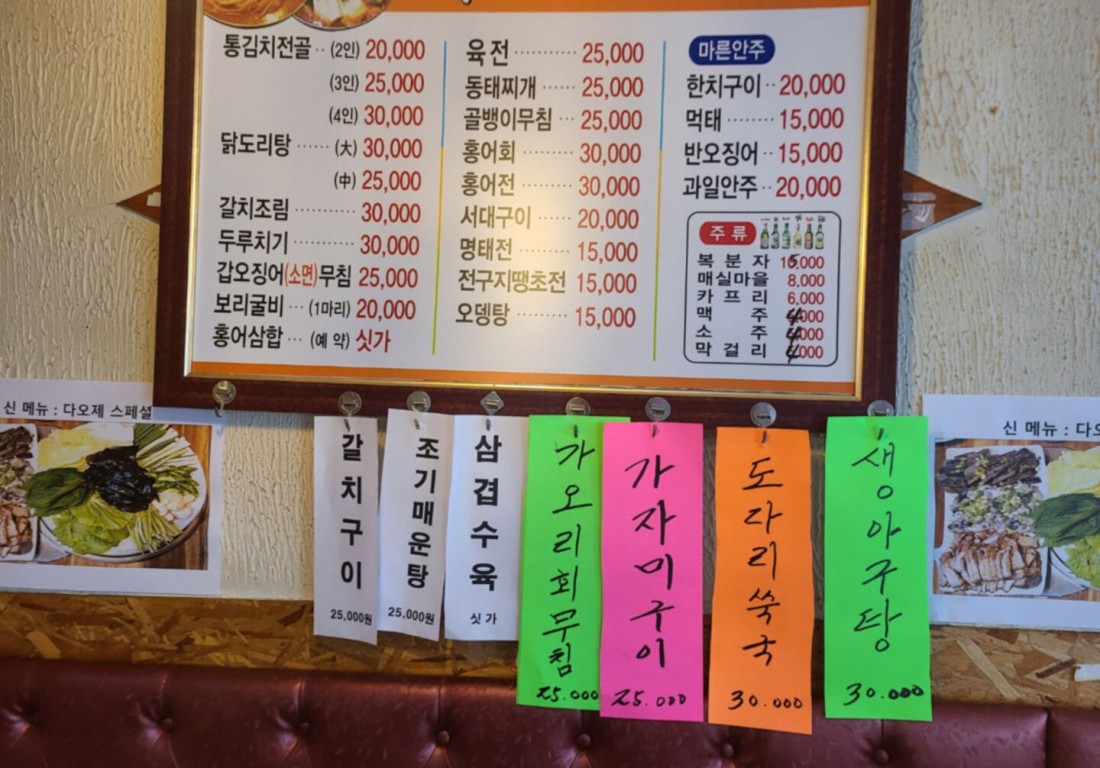 통김치전골 ·· (2인) 20,000
(3인) 25,000
(4인) 30,000
닭도리탕 ······ (大) 30,000
(中) 25,000
갈치조림 ·········· 30,000
두루치기 ·········· 30,000
갑오징어(소면)무침 25,000
보리굴비 ··· (1마리) 20,000
홍어삼합 ··· (예 약) 싯가
육전 ··········· 25,000
동태찌개 ······ 25,000
골뱅이무침 ···· 25,000
홍어회 ········· 30,000
홍어전 ········· 30,000
서대구이 ······ 20,000
명태전 ········· 15,000
전구지땡초전 15,000
오뎅탕 ········· 15,000
마른안주
한치구이 ·· 20,000
먹태 ········ 15,000
반오징어 ·· 15,000
과일안주 ·· 20,000
주 류
복 분 자 15,000
매실마을 8,000
카 프 리 6,000
맥 주 4,000
소 주 4,000
막 걸 리 4,000
신 메뉴 : 다오제 스페셜
갈치구이
25,000원
조기매운탕
25,000원
삼겹수육
싯가
가오리회무침
25.000
가자미구이
25.000
도다리쑥국
30.000
생아구탕
30.000
신 메뉴 : 다오